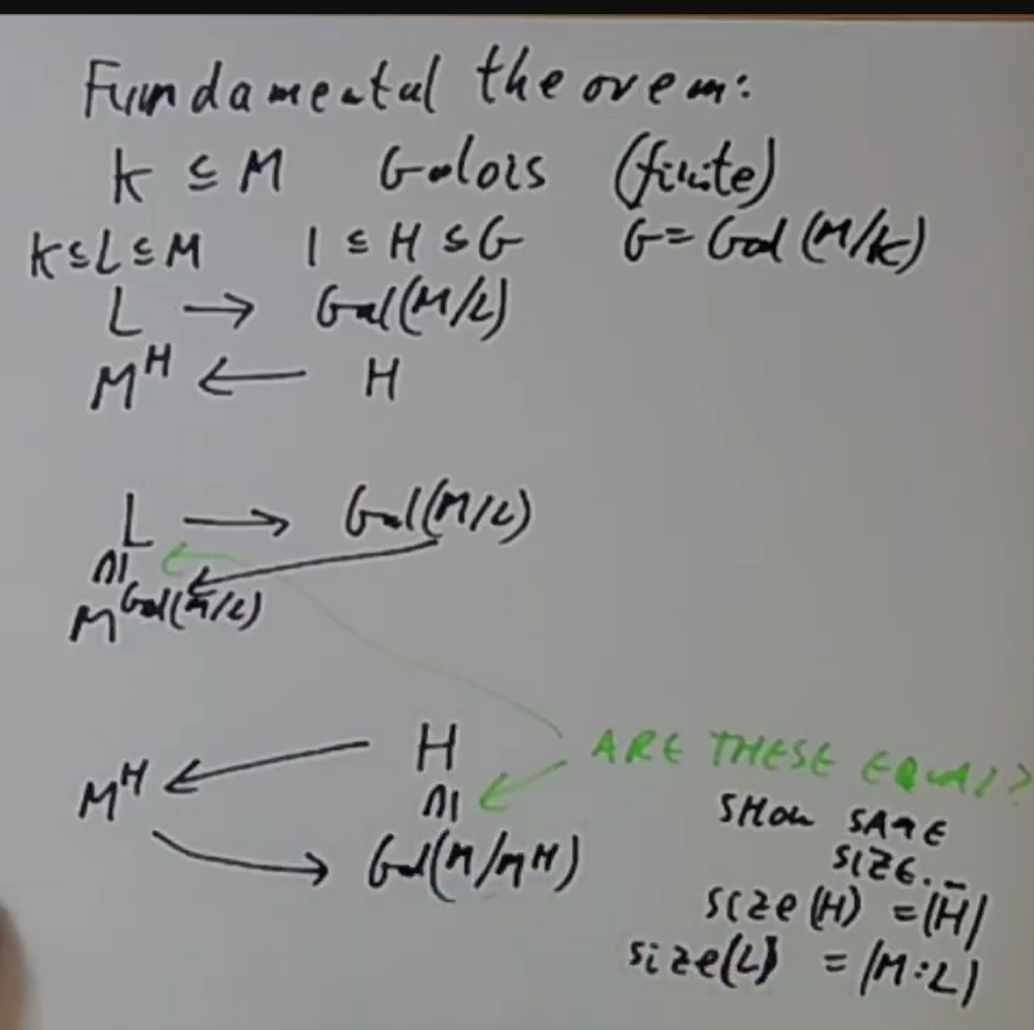 Fundamental theorem:
K ⊆ M Galois (finite)
K ≤ L ≤ M 1 ≤ H ≤ G G = Gal(M/K)
L → Gal(M/L)
M^H ← H
L → Gal(M/L)
∩|
M^Gal(M/L)
H
ARE THESE EQUAL?
M^H ∩|
SHOW SAME
Gal(M/M^H) SIZE.
size(H) = |H|
size(L) = |M:L|